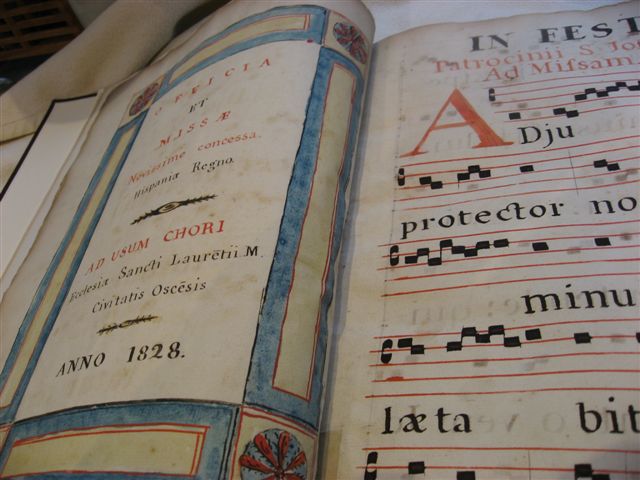 OFFICIA
ET
MISSÆ
Novissime concessa.
Hispaniæ Regno.
AD USUM CHORI
Ecclesiæ Sancti Laurētii M.
Civitatis Oscēsis
ANNO 1828.
IN FEST
Patrocinii S. Jo
Ad Missam
ADju
protector no
minu
læta bit